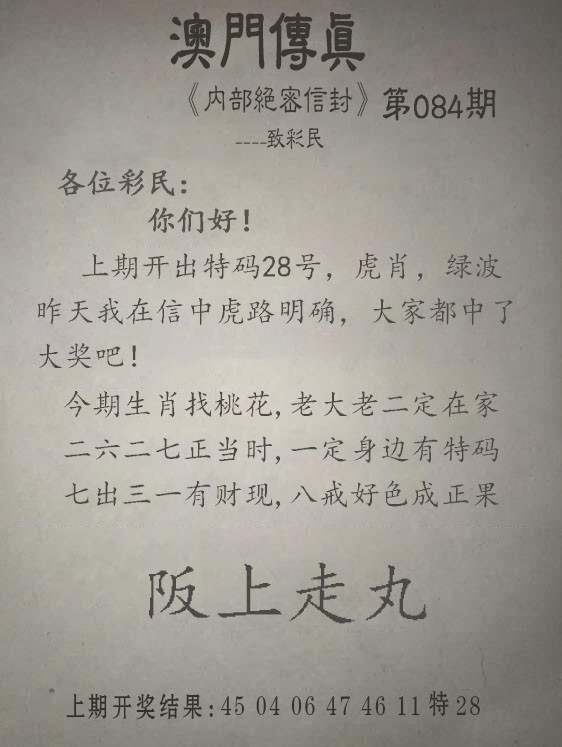 澳門傳眞
《内部絕密信封》第084期
----致彩民
各位彩民:
你们好!
上期开出特码28号，虎肖，绿波
昨天我在信中虎路明确，大家都中了
大奖吧!
今期生肖找桃花,老大老二定在家
二六二七正当时,一定身边有特码
七出三一有财现,八戒好色成正果
阪上走丸
上期开奖结果:45 04 06 47 46 11 特 28